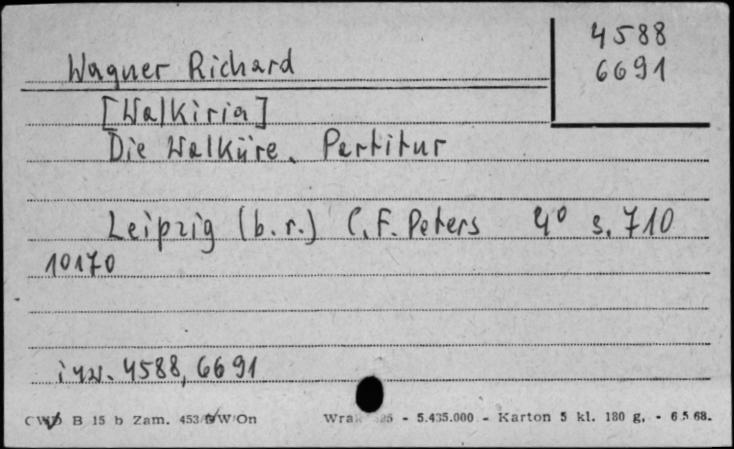 4588
Wagner Richard 6691
[Walkiria]
Die Walküre. Partitur
Leipzig (b.r.) C.F. Peters 4° s. 710
10170
inw. 4588, 6691
B 15 b Zam. 453 W/On - 5.435.000 - Karton 5 kl. 180 g. - 6.5 68.